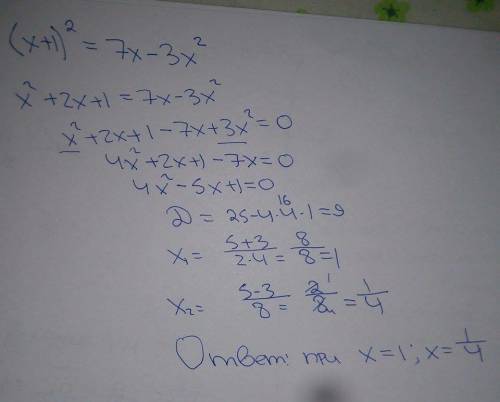 (x+1)² = 7x-3x²
x²+2x+1=7x-3x²
x²+2x+1-7x+3x²=0
4x²+2x+1-7x=0
4x²-5x+1=0
D = 25-4·4·1=9 16
x₁= 5+3/2·4 = 8/8 =1
x₂= 5-3/8 = 2/8 1 4 = 1/4
Ответ: при x=1; x=1/4